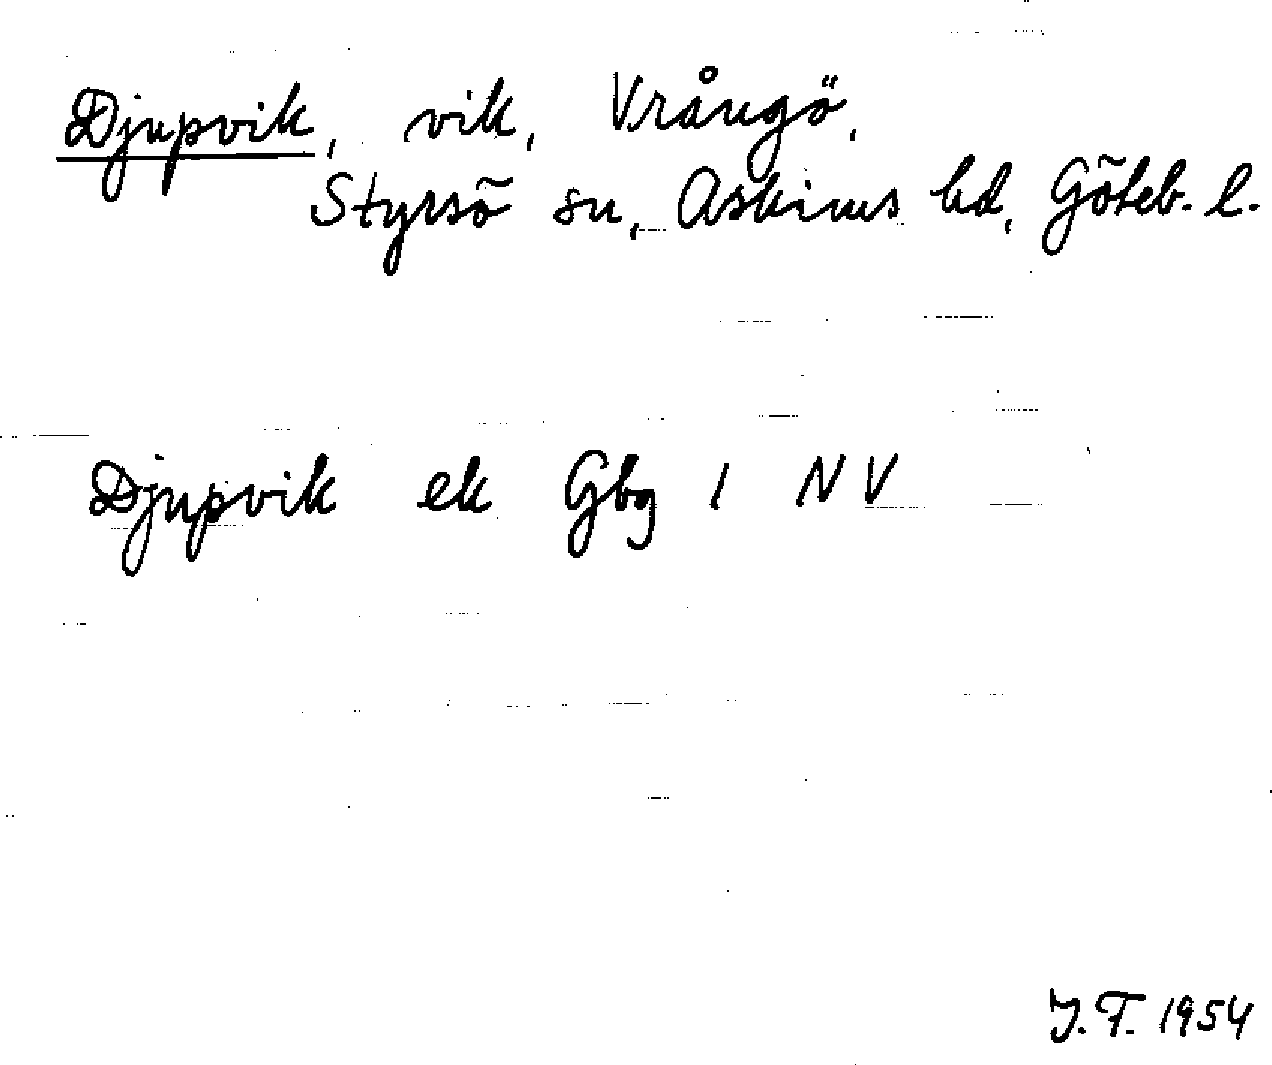 Djupvik, vik, Vrångö,
Styrsö sn, Askims hd, Göteb. l.
Djupvik ek Gbg 1 NV
J.F. 1954